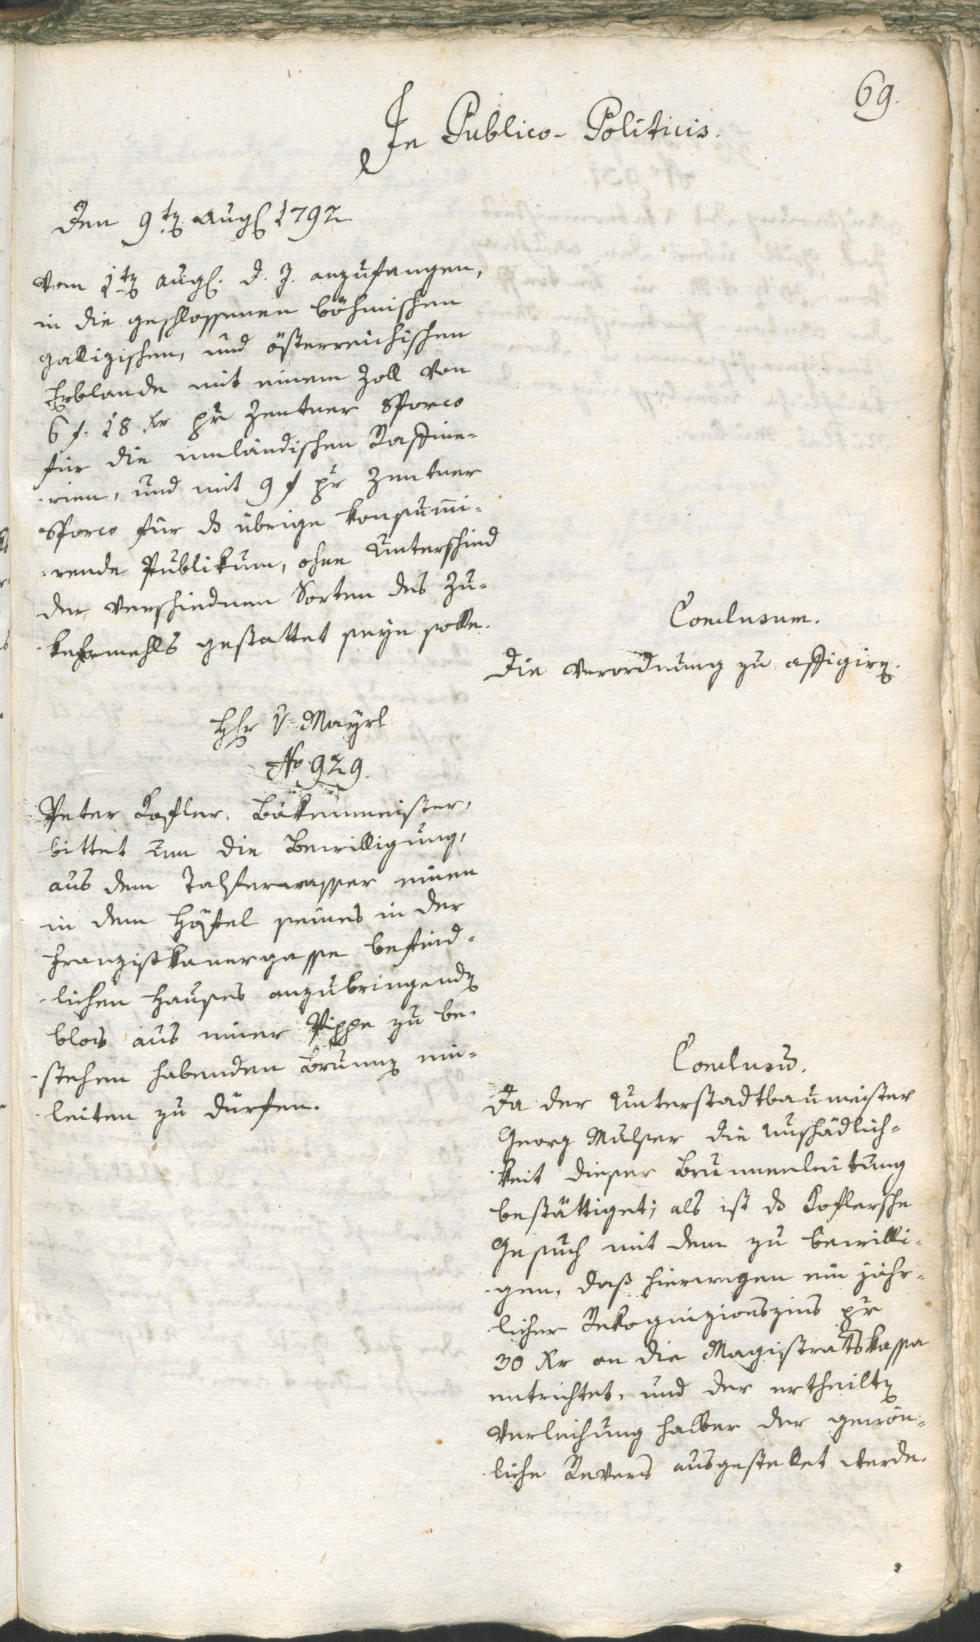 69.
In Publico-Politicis.
Den 9ten Augs 1792
vom 1ten Augs. d. J. anzufangen,
in die geschlossenen böhmischen
gallizischen, und österreichischen
Erblande mit einem Zoll von
6 f. 18 Kr pr Zentner Sporco
für die innländischen Raffine-
rien, und mit 9 f pr Zentner
Sporco für das übrige konsumi-
rende Publikum, ohne Unterschied
der verschiednen Sorten des Zu-
kermehls gestattet seyn solle.
Conclusum.
Die Verordnung zu affigiren.
Hr v. Mayrl
No 929.
Peter Kofler, Bäkenmeister,
bittet um die Bewilligung,
aus dem Talferwasser einen
in dem Höfel seines in der
Franziskanergasse befind-
lichen Hauses anzubringenden
blos aus einer Pippe zu be-
stehen habenden Brunnen ein-
leiten zu dürfen.
Conclusum.
Da der Unterstadtbaumeister
Georg Mulser die Unschädlich-
keit dieser Brunnenleitung
bestättiget; als ist das Koflersche
Gesuch mit dem zu bewilli-
gen, daß hierwegen ein jähr-
licher Rekognizionszins pr
30 Kr an die Magistratskassa
entrichtet, und der ertheilten
Verleihung halber der gewön-
liche Revers ausgestellet werde.